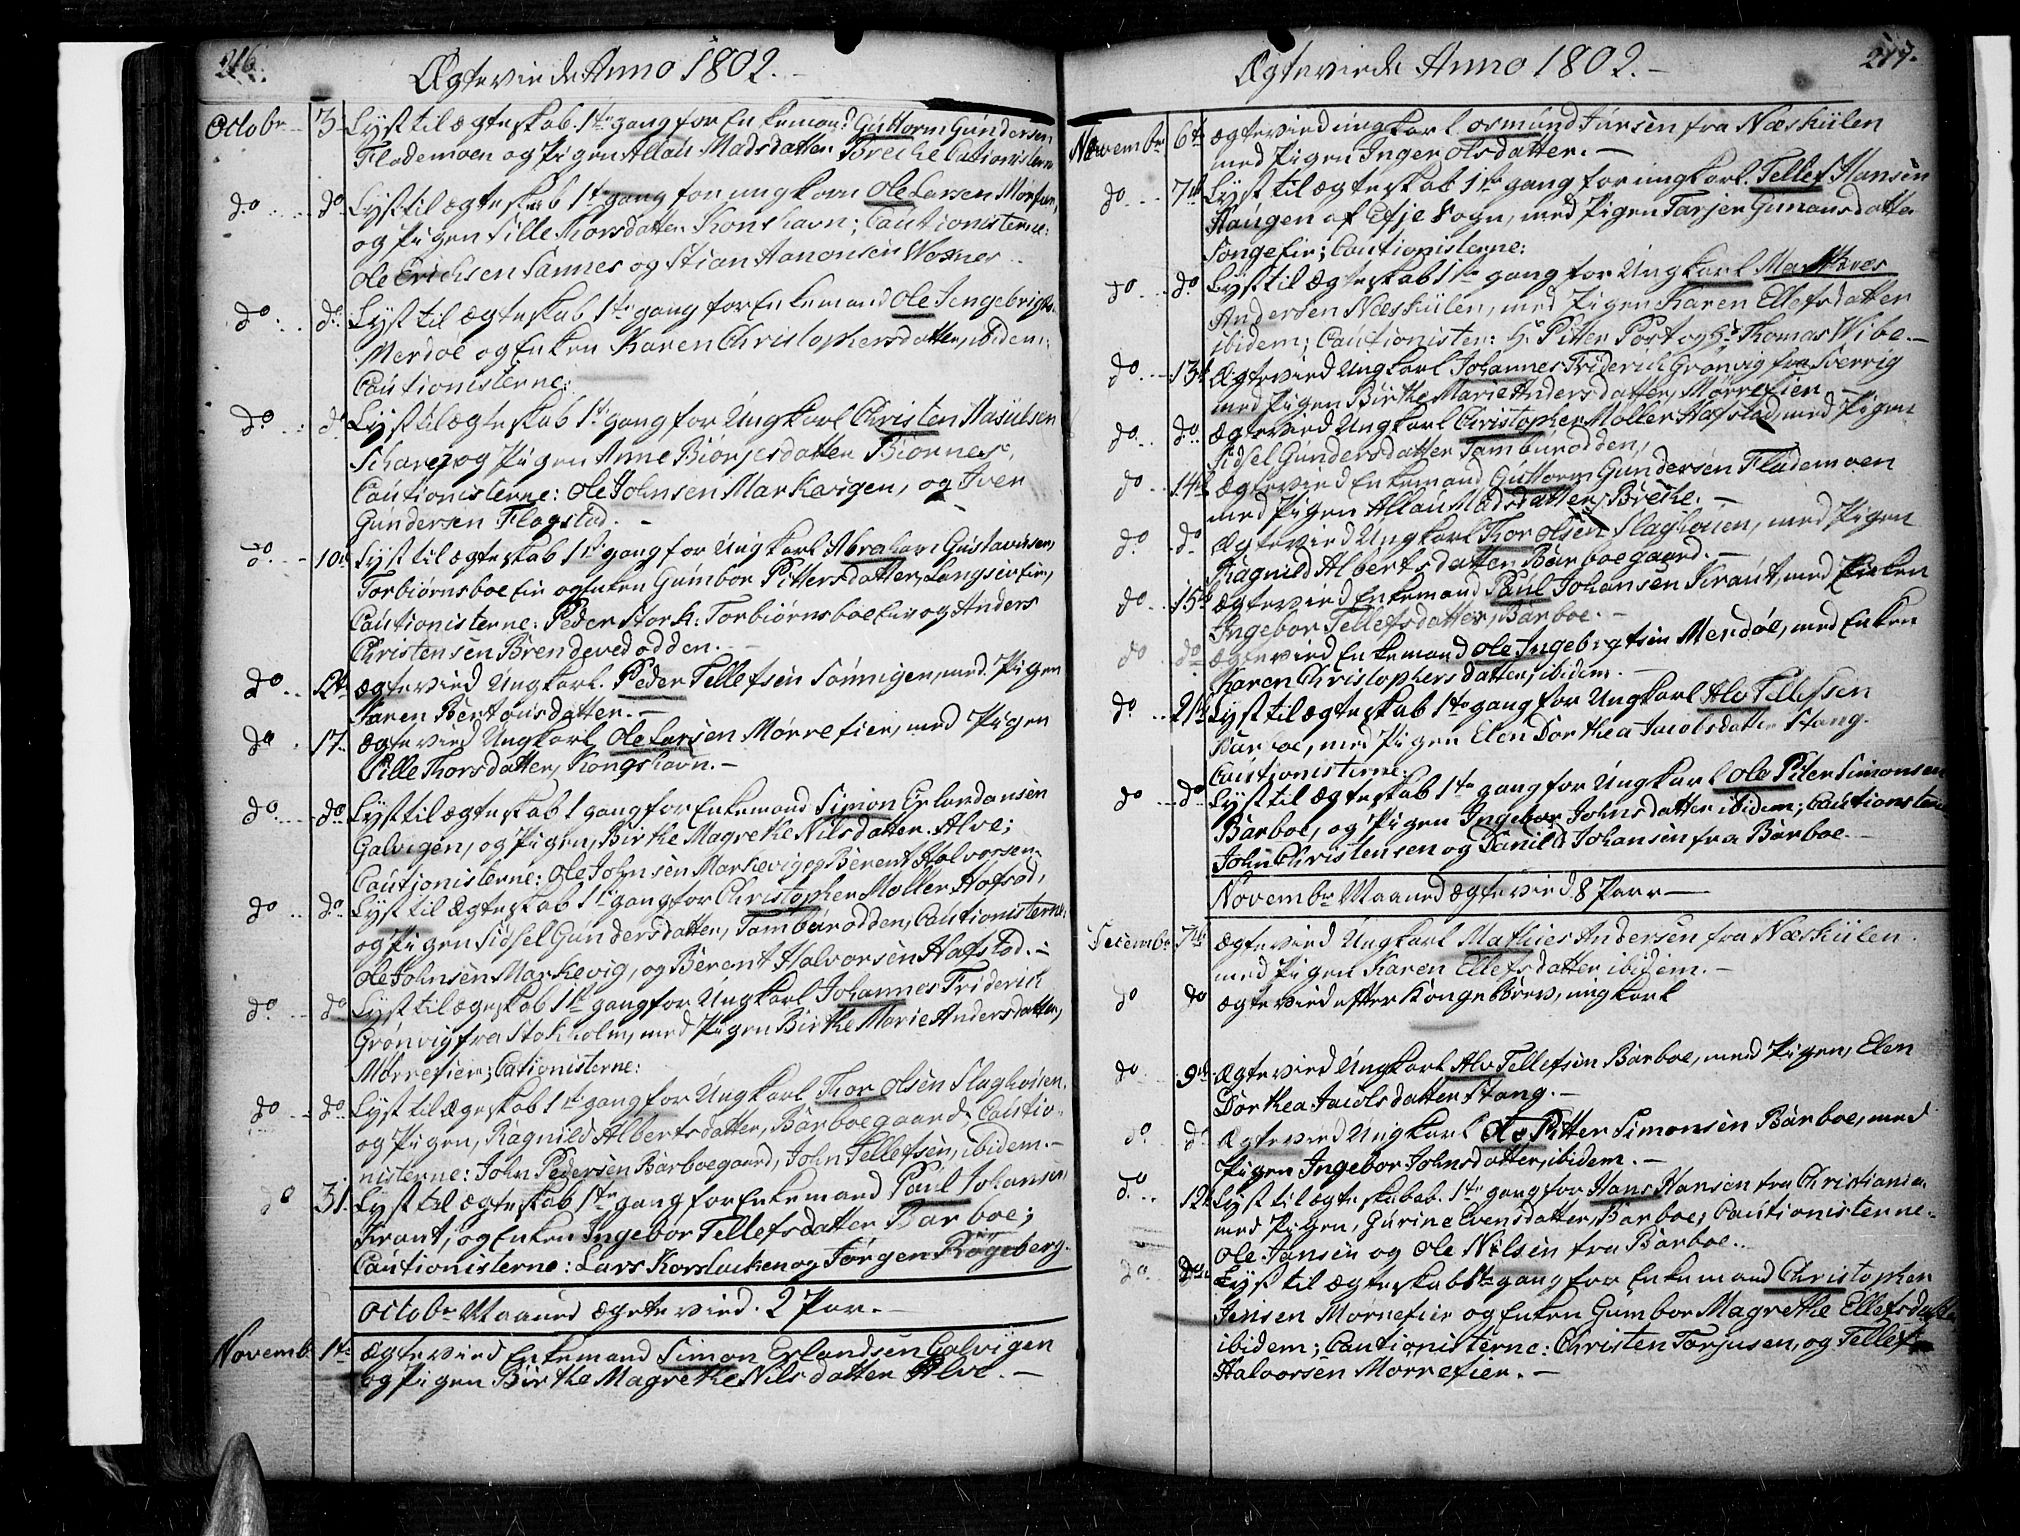 216.
Ægteviede Anno 1802.
Octobr 3 Lyst til ægteskab 1te gang for Enkemand Guttorm Gundersen
Flademoen og Pigen Allau Madsdatter Brecke Cationisterne
do do Lyst til ægteskab 1te gang for ungkarn Ole Larsen Mörfier,
og Pigen Sille Thorsdatter Konshavn; Cautionisterne:
Ole Erichsen Sannes og Stian Aanonsen Woxnes
do do Lyst til Ægteskab 1te gang for Enkemand Ole Ingebrigts.
Merdöe og Enken Karen Christophersdatter, ibidem:
Cautionisterne:
do do Lyst til ægteskab 1te gang for Ungkarl Christen Nasulsen
og Pigen Anne Biörjesdatter Biornes,
Cautionisterne: Ole Johnsen Markevigen, og Iver
Gundersen Flagstad.
do 10de Lyst til ægteskab 1te gang for Ungkarl Abraham Gustavusen,
Torbiörnsboe Eie og Enken Gumbor Pittersdatter,
Cautionisterne: Peder Stork: Torbiörnsboe Eie og Anders
Christensen Brendevedodden.
do 12te ægtevied Ungkarl. Peder Tellefsen Sönnigen, med Pigen
Karen Berthousdatter.
do 17. ægtevied Ungkarl Ole Larsen Mörrefier, med Pigen
Sille Thorsdatter, Kongshavn.
do do Lyst til ægteskab 1 gang for Enkemand Simon Erlandsen
Galvigen, og Pigen, Birthe Magrethe Nilsdatter Alve;
Cautionisterne: Ole Johnsen Markevig og Berent Halvorsen
do do Lyst til Ægteskab 1te gang for Christopher Möller Hafstad,
og Pigen Sidsel Gundersdatter, Tambúrodden, Cautionisterne:
Ole Johnsen Markevig, og Berent Halvorsen Hafstad.
do do Lyst til ægteskab 1te gang for Ungkarl Johannes Friderich
Grönvig fra Stokholm, med Pigen Birthe Marie Andersdatter,
Mörrefier; Cationisterne:
do do Lyst til Ægteskab 1te gang for Ungkarl Thor Olsen Slaghöien,
og Pigen, Ragnild Albertsdatter, Barboegaard; Cautio-
nisterne: John Pedersen Barboegaard, John Tellefsen, ibidem.
do 31. Lyst til ægteskab 1te gang for Enkemand Paul Johansen
Krant, og Enken Ingebor Tellefsdatter Barboe;
Cautionisterne: Lars og Jörgen Rögeberg.
Octobr Maaned ægtevied. 2 Par.
Novemb 1te Ægtevied Enkemand Simon Erlandsen Galvigen
og Pigen Birthe Magrethe Nilsdatter Alve.
217.
Ægteviede Anno 1802.
Novembr 6te ægtevied ungkarl Osmund Jursen fra Næskiilen
med Pigen Inger Olsdatter.
do 7de Lyst til ægteskab 1te gang for ungkarl. Tellef Hansen
Haugen af Sogn, med Pigen Tarjer Gunansdatter
Songefir; Cautionisterne:
do do Lyst til ægteskab 1te gang for Ungkarl Matthies
Andersen Næskiilen, med Pigen Karen Ellefsdatter
ibidem; Cautionister: Hr Pitter Port og Hr Thomas Wibe.
do 13de Ægtevied Ungkarl Johannes Friderich Grönvig fra Sverrig
med Pigen Birthe Marie Andersdatter, Mörrefier
do do ægtevied Ungkarl Christopher Möller Hafstad, med Pigen
Sidsel Gundersdatter Tamburodden,
do 14de ægtevied Enkemand Guttorm Gundersen Flademoen
med Pigen Allau Madsdatter, Breche.
do do ægtevied Ungkarl Thor Olsen Slaghöien, med Pigen
Ragnild Albertsdatter Barboegaard.
do 15de ægtevied Enkemand Paul Johansen Krant, med Enken
Ingebor Tellefsdatter, Barboe.
do do ægtevied Enkemand Ole Ingebrigtsen Merdöe, med Enken
Karen Christophersdatter, ibidem.
do 21de Lyst til ægteskab 1te gang for Ungkarl Alv Tellefsen
Barboe, med Pigen Elen Dorthea Jacobsdatter Stang.
Cautionisterne:
do do Lyst til Ægteskab 1te gang for Ungkarl Ole Piter Simonsen
Barboe, og Pigen Ingebor Johnsdatter ibidem; Cautionisterne
John Christensen og Danild Johansen fra Barboe.
Novembr Maaned ægtevied 8 Parr
Decembr 7de ægtevied Ungkarl Mathies Andersen fra Næskiilen
med Pigen Karen Ellefsdatter ibidem.
do do ægtevied efter Konge Brev, ungkarl
do 9de Ægtevied Ungkarl Alv Tellefsen Barboe, med Pigen, Elen
Dorthea Jacobsdatter Stang.
do do Ægtevied Ungkarl Ole Pitter Simonsen Barboe, med
Pigen Ingebor Johnsdatter, ibidem.
do 12te Lyst til ægteskabeb. 1te gang for Hans Hansen fra Christiania
med Pigen, Gurine Evensdatter, Barboe; Cautionisterne.
Ole Jansen og Ole Nilsen fra Barboe.
do do Lyst til ægteskab 1te gang for Enkemand Christopher
Jensen Mörrefier og Enken Gumbor Magrethe Ellefsdatter
ibidem; Cautionisterne: Christen Torjusen, og Tellef
Halvorsen Morrefier.